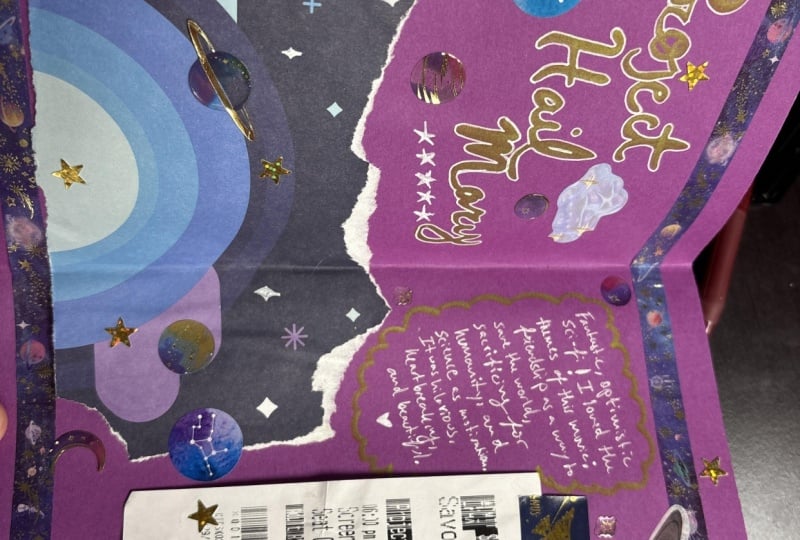 Project
Hail
Mary
Fantastic, optimistic
sci-fi! I loved the
themes of this movie:
friendship as a way to
save the world,
sacrificing for
humanity, and
science as motivation.
It was hilarious,
heartbreaking,
and beautiful.
Savo
Projec
Screen
Seat